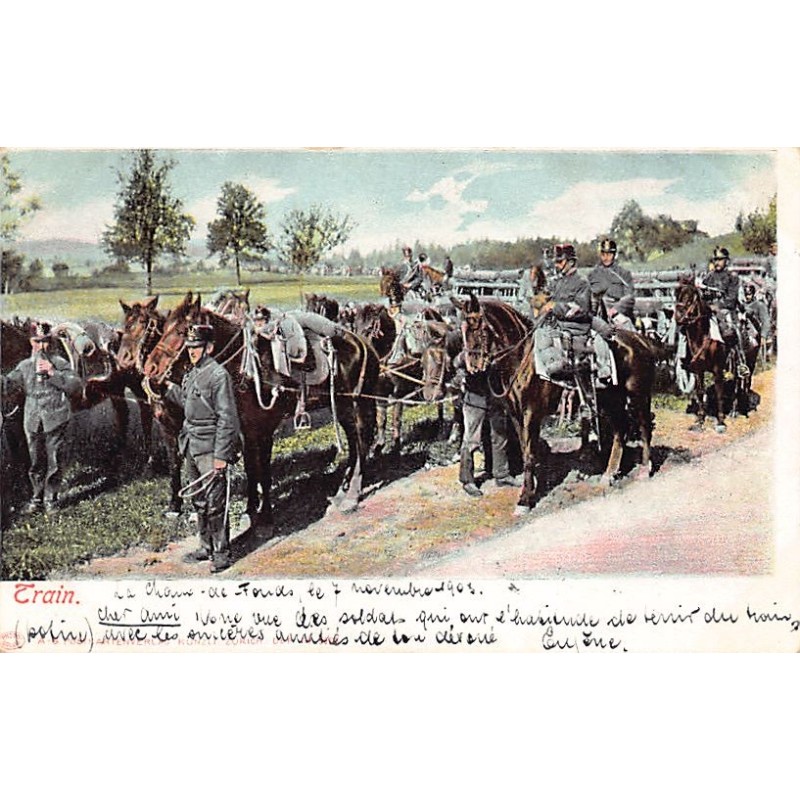 Train.
La Chaux-de-Fonds, le 7 novembre 1903.
Cher Ami Une vue des soldats qui ont l'habitude de tenir du train,
(potin) avec les sincères amitiés de ton dévoué Eugène.
KÜNZLI ZÜRICH